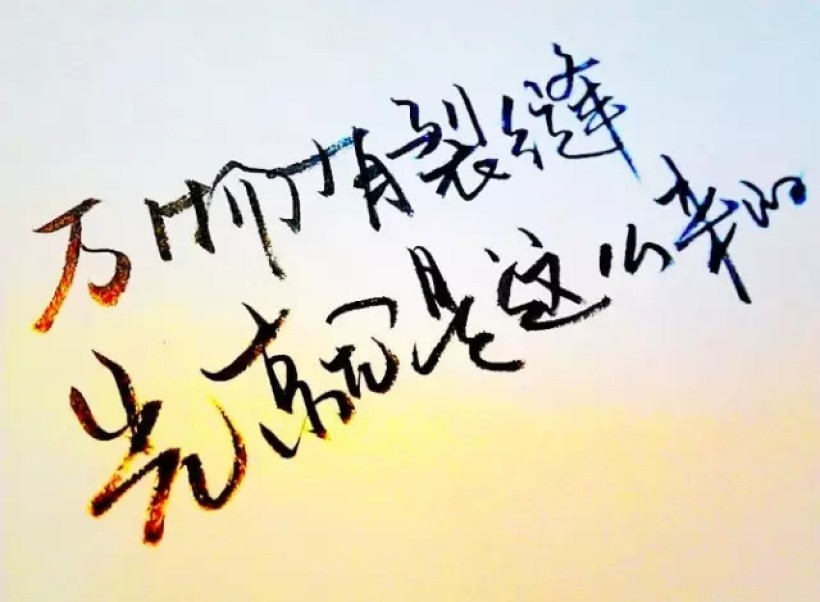 万物有裂缝
光就是这么来的